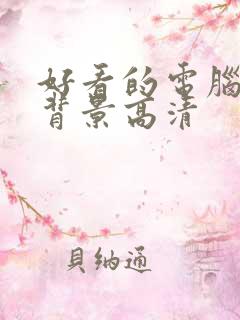 好看的電腦
背景高清
貝納通